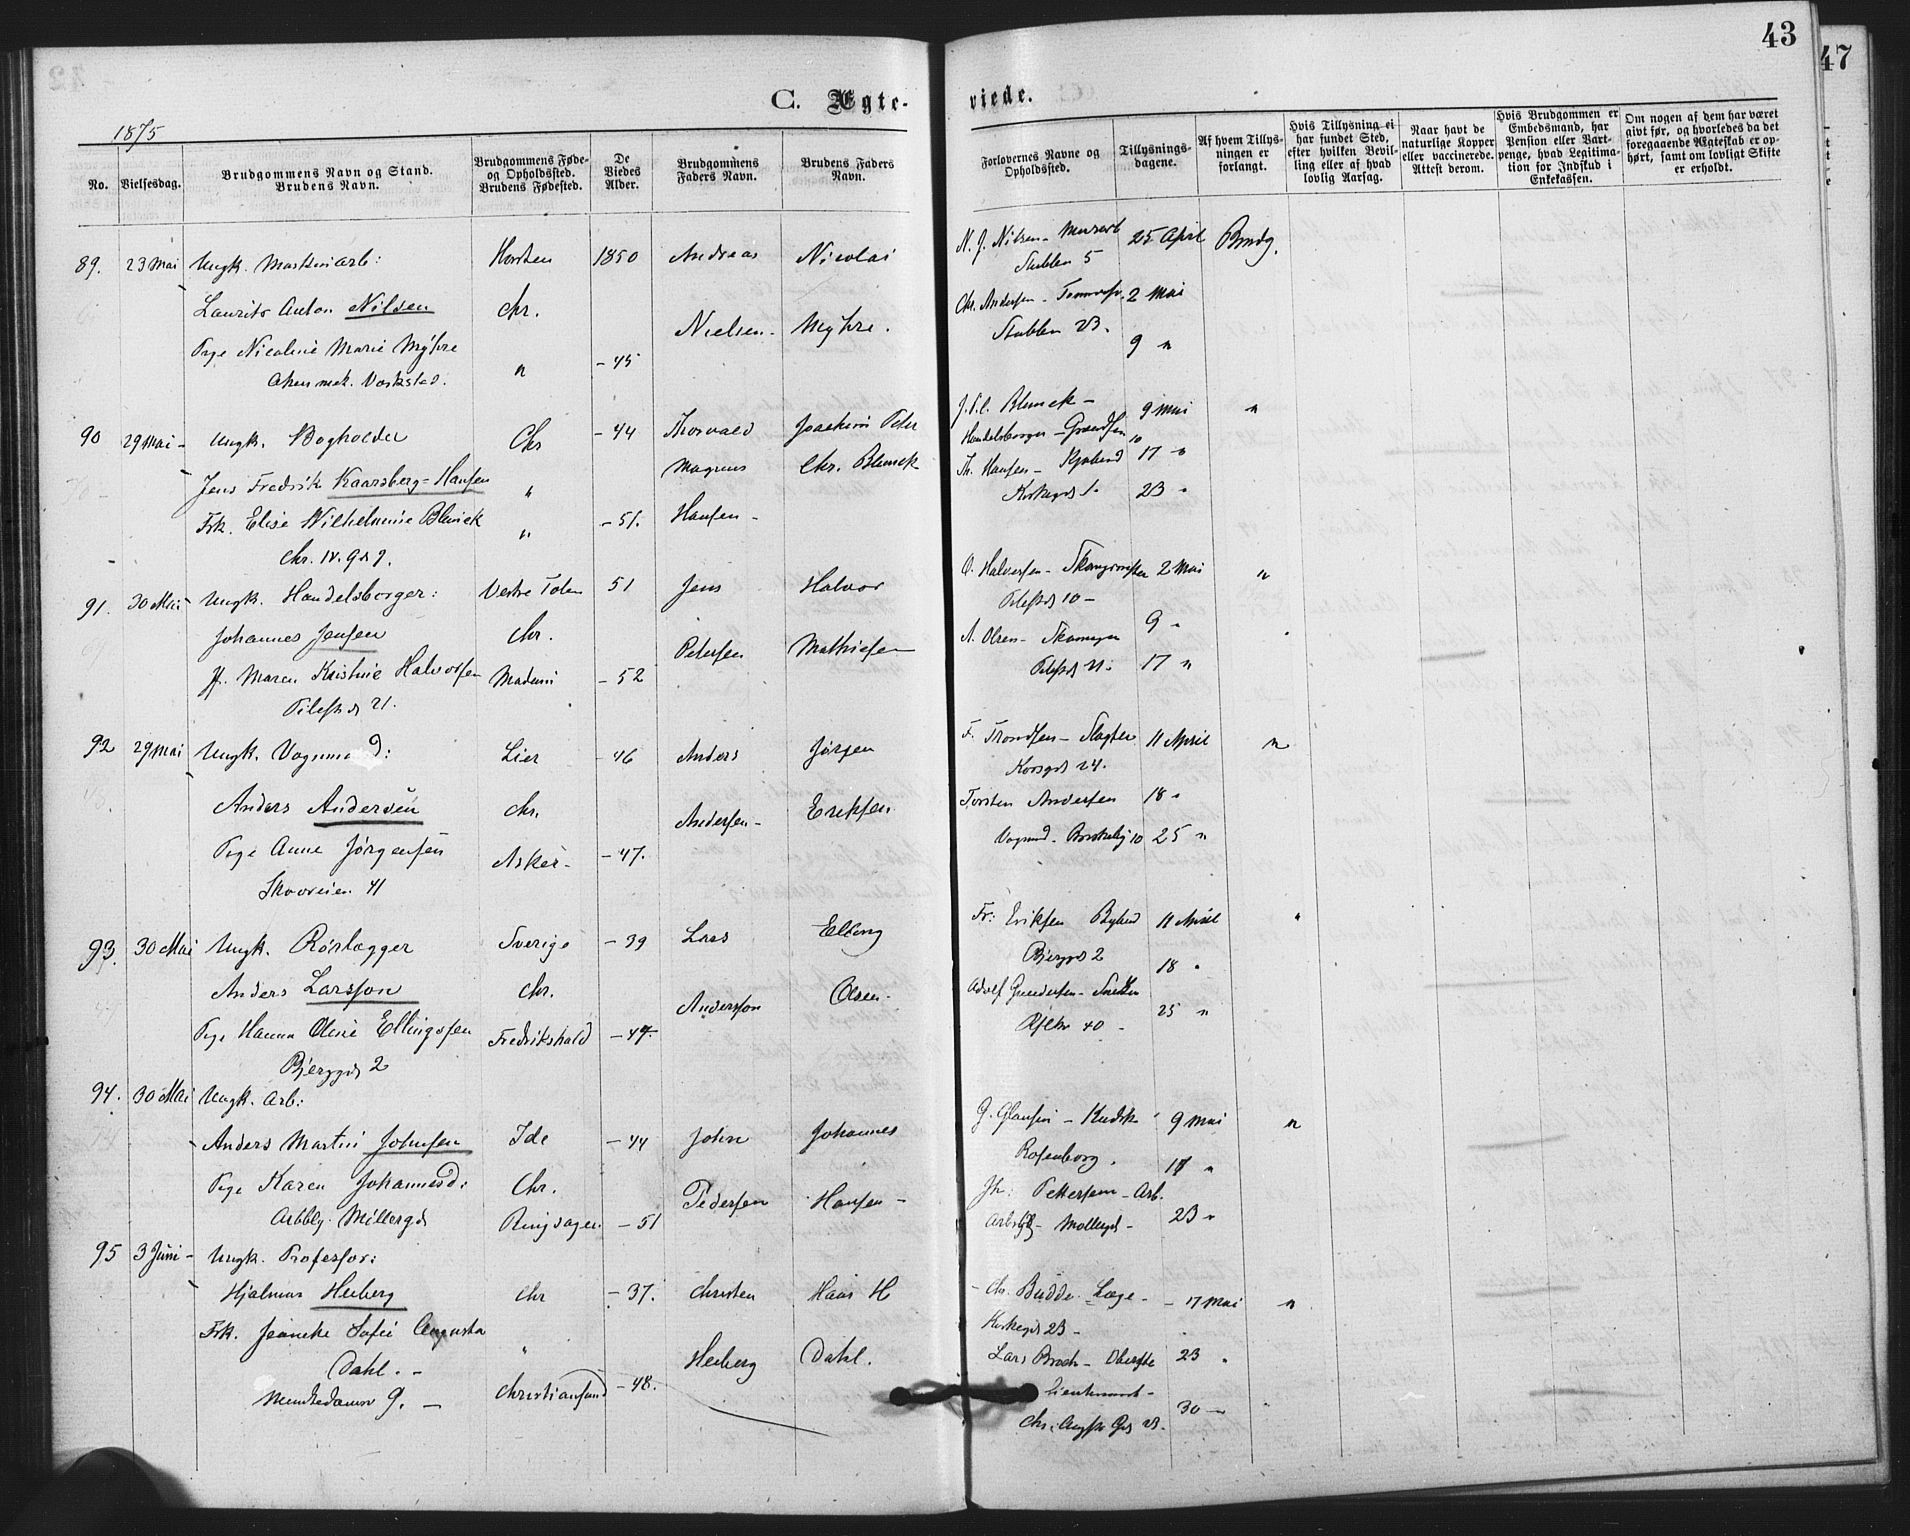 43
47
C. Ægte-
viede.
1875
No.
Vielsesdag.
Brudgommens Navn og Stand.
Brudens Navn.
Brudgommens Føde-
og Opholdssted.
Brudens Fødested.
De
Viedes
Alder.
Brudgommens
Faders Navn.
Brudens Faders
Navn.
Forlovernes Navne og
Opholdssted.
Tillysnings-
dagene.
Af hvem Tillys-
ningen er
forlangt.
Hvis Tillysning ei
har fundet Sted,
efter hvilken Bevil-
ling eller af hvad
lovlig Aarsag.
Naar havt de
naturlige Kopper
eller vaccinerede.
Attest derom.
Hvis Brudgommen er
Embedsmand, har
Pension eller Vart-
penge, hvad Legitima-
tion for Indskud i
Enkekassen.
Om nogen af dem har været
givt før, og hvorledes da det
foregaaende Ægteskab er op-
hørt, samt om lovligt Skifte
er erholdt.
89. 23 Mai Ungk. Maskinarb: Horten 1850 Andreas Nicolai N. J. Nilsen- 25 April Brudg.
Stubben 5
Laurits Anton Nilsen Chr. Nielsen- Myhre. Chr. Andersen - 2 Mai
Stubben 23.
Pige Nicoline Marie Myhre " - 45 9 "
Akers mek. Værksted.
90 29 Mai - Ungk. Bogholder Chr - 44 Thorvald Joachim Peter J. P. C. Blunck - 9 Mai "
Jens Fredrik Kaarsberg-Hansen " Magnus Chr. Blunck Handelsborger - 10
Th. Hansen - 17 "
Frk. Elise Wilhelmine Blunck " - 51. Hansen - Kirkegd 1. 23 "
Chr. IV. Gd 9.
91. 30 Mai Ungk. Handelsborger: Vestre Toten 51 Jens Halvor O. Halversen - 2 Mai "
Pilestd 10 -
Johannes Jensen Chr. Petersen Mathiesen A. Olsen - 9 "
Jf. Maren Kristine Halvorsen - 52 Pilestd 21. 17 "
Pilestd 21.
92 29 Mai Ungk. Vognmand: Lier - 46 Anders Jørgen F. Trondsen - Slagter 11 April "
Korsgd 24.
Anders Andersen Chr. Andersen - Eriksen Torsten Andersen 18 "
Pige Anne Jørgensen Asker - - 47. Vognmd. 10 25 "
41
93. 30 Mai Ungk. Rørlægger Sverige - 39 Lars Elling Fr: Eriksen 11 April "
Bjerggd 2
Anders Larsson Chr. Andersson Olsen. Adolf Gundersen - 18 "
Pige Hanna Oline Ellingsen Fredrikshald - 47. 40 - 25 "
Bjerggd 2
94. 30 Mai Ungk. Arb:
Anders Martin Johnsen Ide - 44 John Johannes G. - Kudsk 9 Mai "
Rosenborg.
Pige Karen Johannesd: Chr. Pedersen Hansen - Jh: Pettersen - Arb. 17 "
Arbblg. Møllergd Ringsager - 51 Møllergd - 23 "
95 3 Juni - Ungk. Professor:
Hjalmar Heiberg Chr - 37. Christen Haas H - Chr. Budde. Læge - - 17 Mai "
Kirkegd 23 -
Frk. Jeaneke Sofie Augusta " Heiberg Dahl. Lars Broch - Oberste 23 "
Dahl. -
Munkedamsv 9. - Christiansund - 48. Lieutenant - 30 -
Chr. Augsts Gd 23.